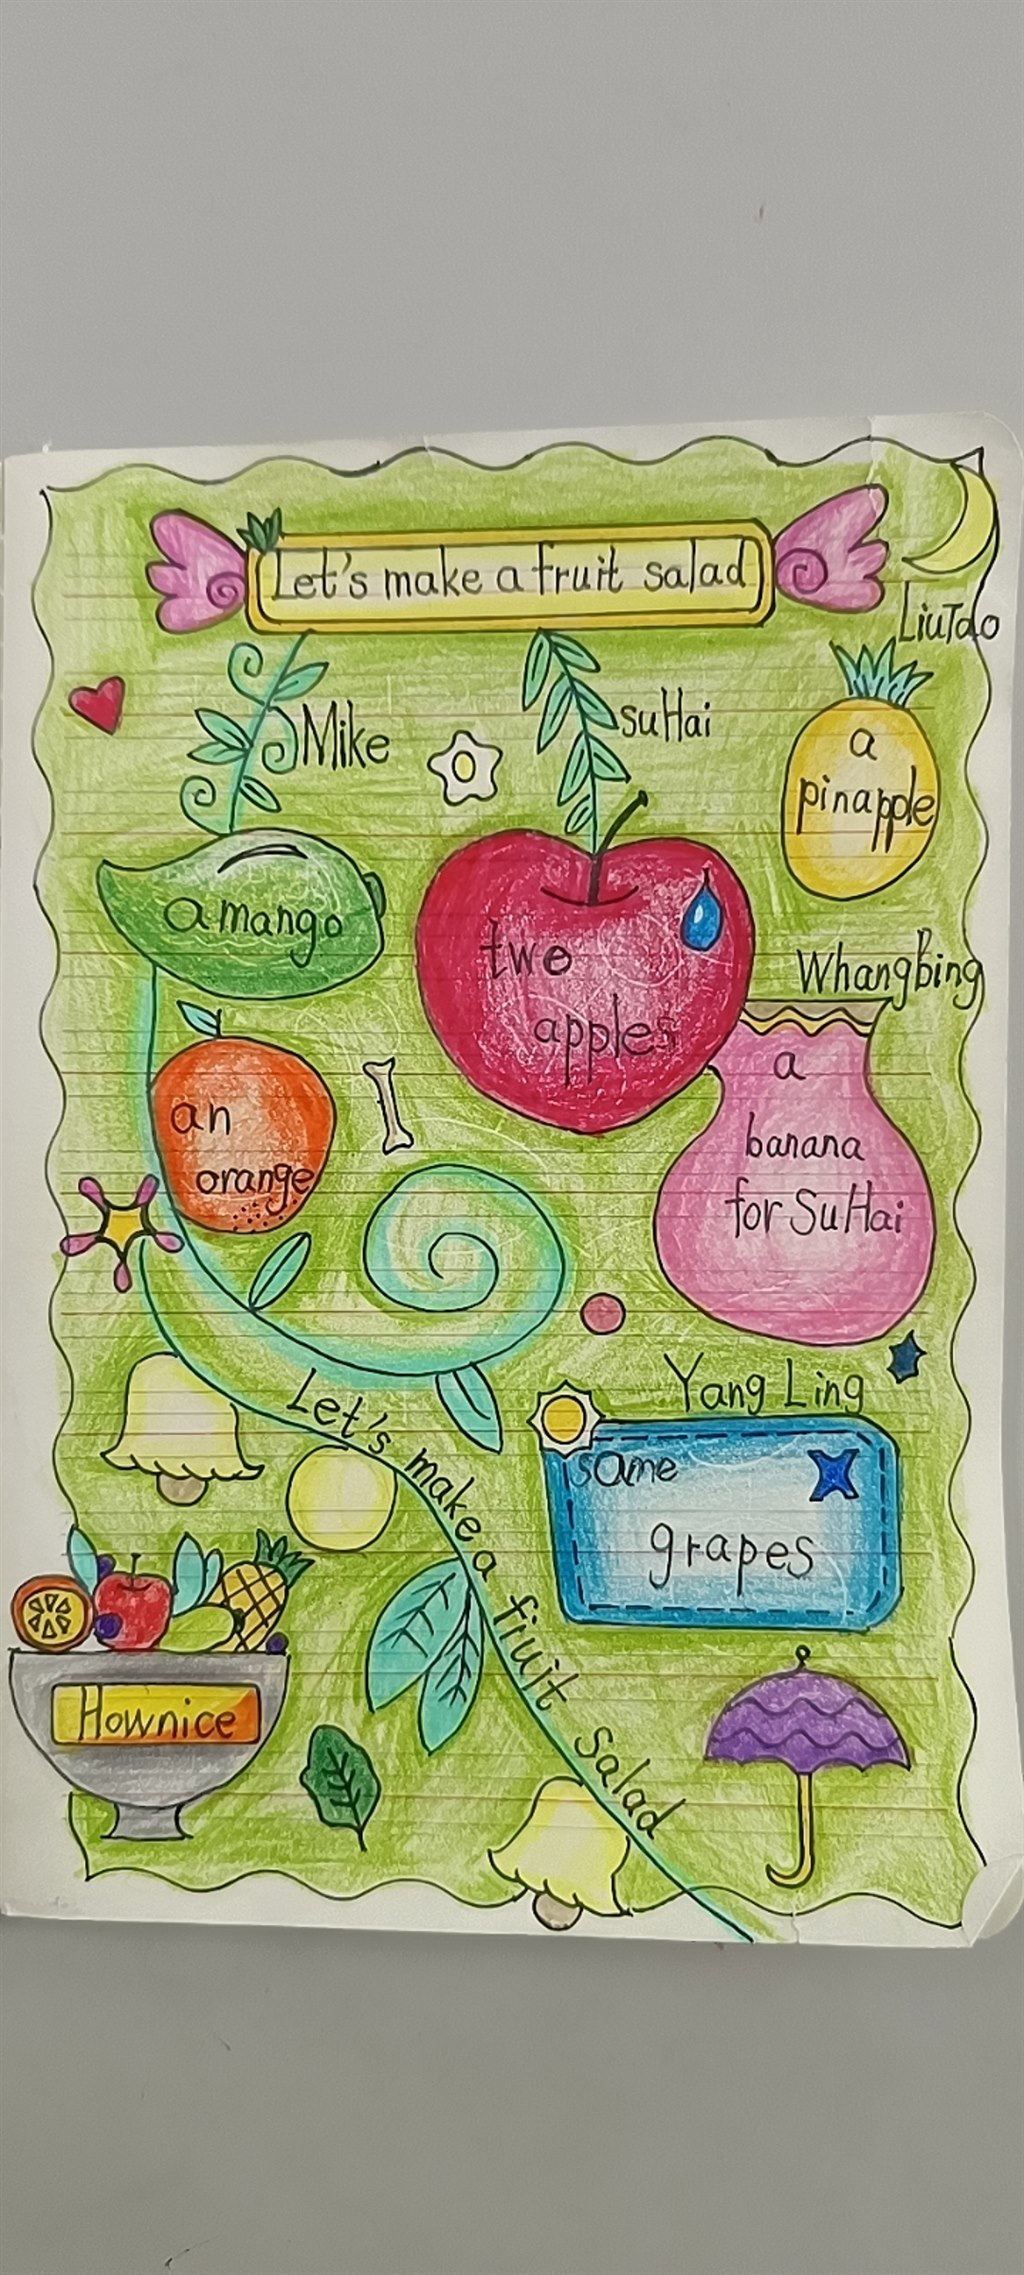 Let's make a fruit salad
LiuTao
Mike
suHai
a
pinapple
a mango
two
apples
Whangbing
a
banana
for SuHai
an
orange
Yang Ling
same
grapes
Let's make a fruit salad
Hownice